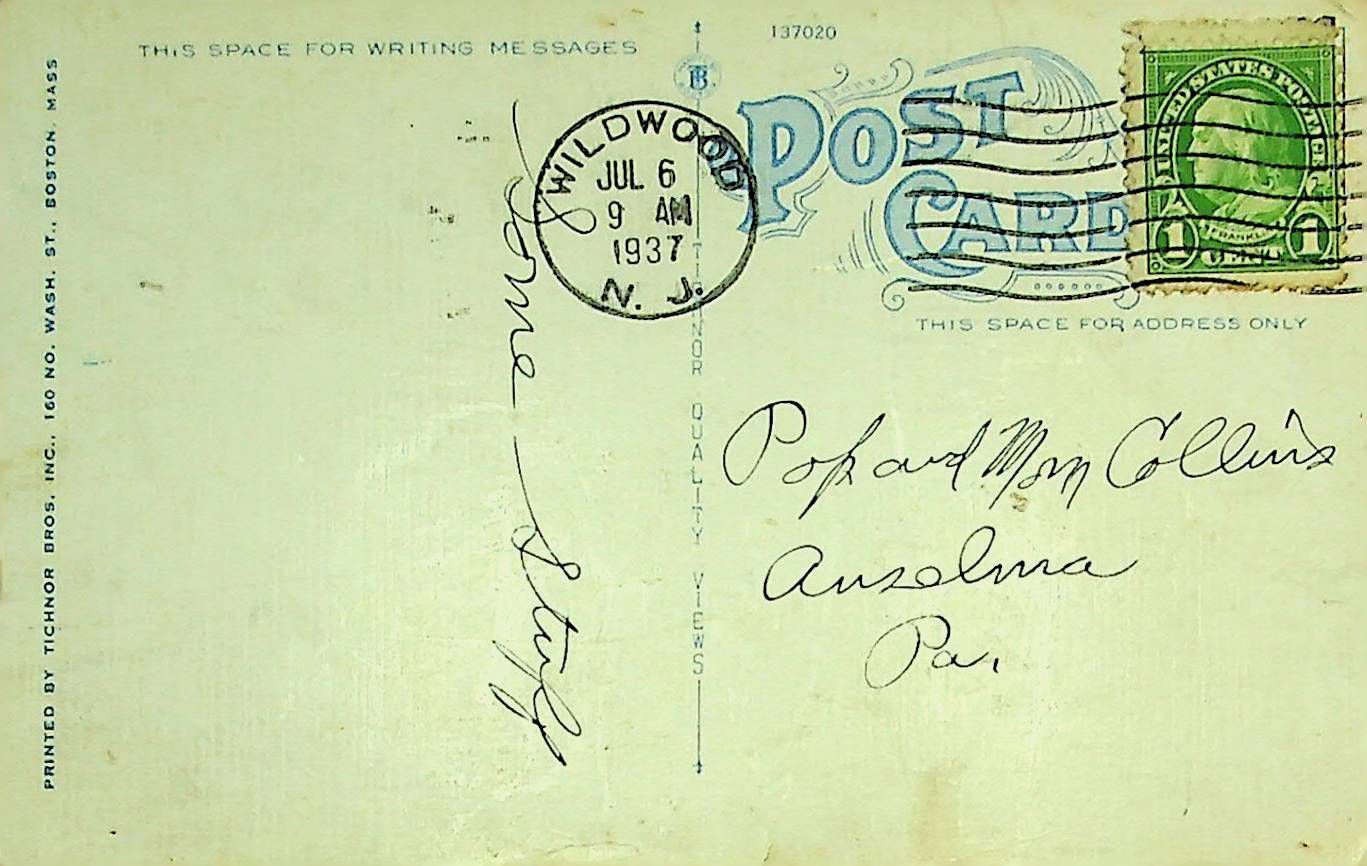 THIS SPACE FOR WRITING MESSAGES
137020
TB
POST
CARD
WILDWOOD
JUL 6
9 AM
1937
N. J.
UNITED STATES POSTAGE
FRANKLIN
1 CENT 1
THIS SPACE FOR ADDRESS ONLY
PRINTED BY TICHNOR BROS. INC., 160 NO. WASH. ST., BOSTON, MASS
TICHNOR QUALITY VIEWS
Some Stuff
Pop and Mom Collins
Anselma
Pa.